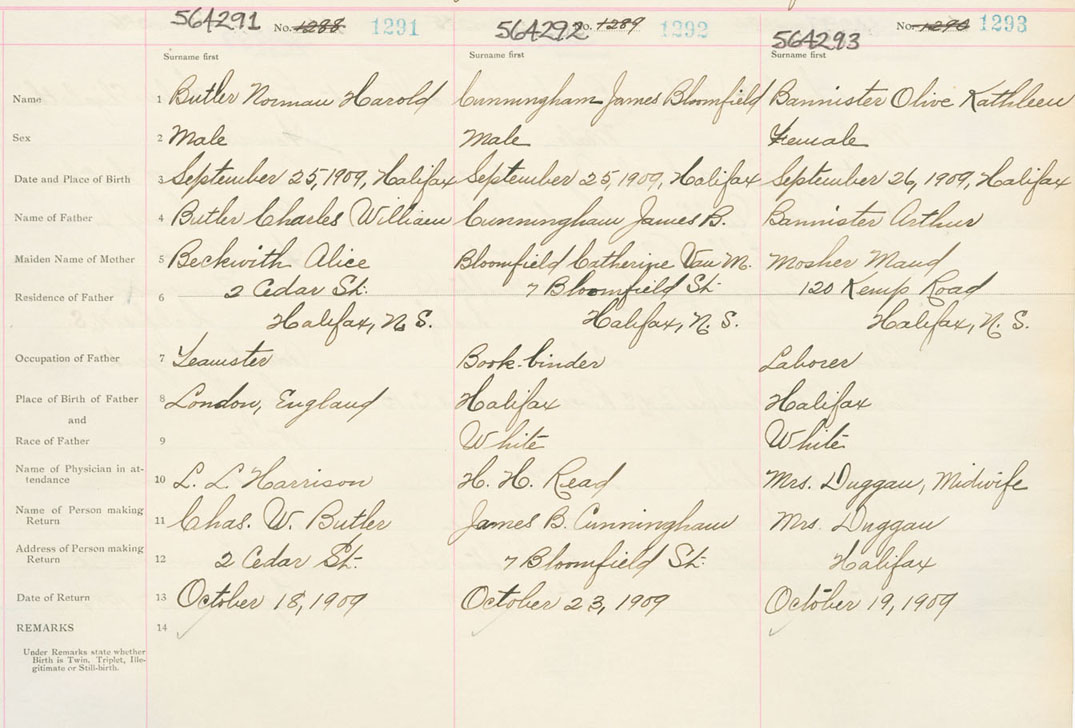 564291 No. 1288 1291 564292 No. 1289 1292 564293 No. 1290 1293
Surname first Surname first Surname first
Name 1 Butler Norman Harold Cunningham James Bloomfield Bannister Olive Kathleen
Sex 2 Male Male Female
Date and Place of Birth 3 September 25, 1909, Halifax September 25, 1909, Halifax September 26, 1909, Halifax
Name of Father 4 Butler Charles William Cunningham James B. Bannister Arthur
Maiden Name of Mother 5 Beckwith Alice Bloomfield Catherine Van M. Mosher Maud
Residence of Father 6 2 Cedar St. 7 Bloomfield St. 120 Kemp Road
Halifax, N.S. Halifax, N.S. Halifax, N.S.
Occupation of Father 7 Teamster Book-binder Laborer
Place of Birth of Father 8 London, England Halifax Halifax
and
Race of Father 9 White White
Name of Physician in at-
tendance 10 L. L. Harrison H. H. Read Mrs. Duggan, Midwife
Name of Person making
Return 11 Chas. W. Butler James B. Cunningham Mrs. Duggan
Address of Person making
Return 12 2 Cedar St. 7 Bloomfield St. Halifax
Date of Return 13 October 18, 1909 October 23, 1909 October 19, 1909
REMARKS 14
Under Remarks state whether
Birth is Twin, Triplet, Ille-
gitimate or Still-birth.